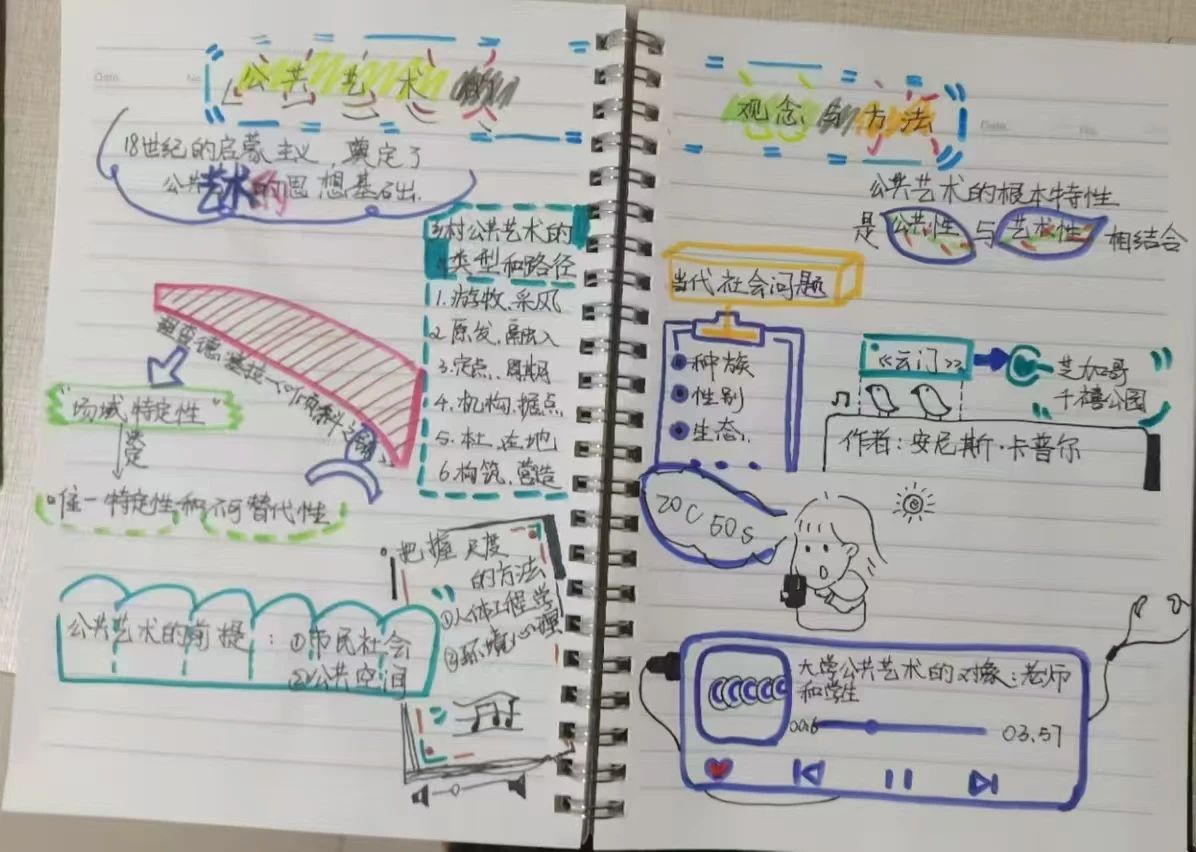 公共艺术的
18世纪的启蒙主义,奠定了
公共艺术的思想基础.
乡村公共艺术的
类型和路径
1.游牧、采风
2.原发、融入
3.定点、周期
4.机构、据点
5.在地
6.构筑、营造
理查德·塞拉
"场域特定性"
决定
唯一特定性和不可替代性
把握尺度
的方法
①人体工程学
②环境心理
公共艺术的前提:①市民社会
②公共空间
观念与方法
公共艺术的根本特性
是公共性与艺术性相结合
当代社会问题
种族
性别
生态.
《云门》
芝加哥
千禧公园
作者:安尼斯·卡普尔
20C 60s
大学公共艺术的对象:老师
和学生
03.57